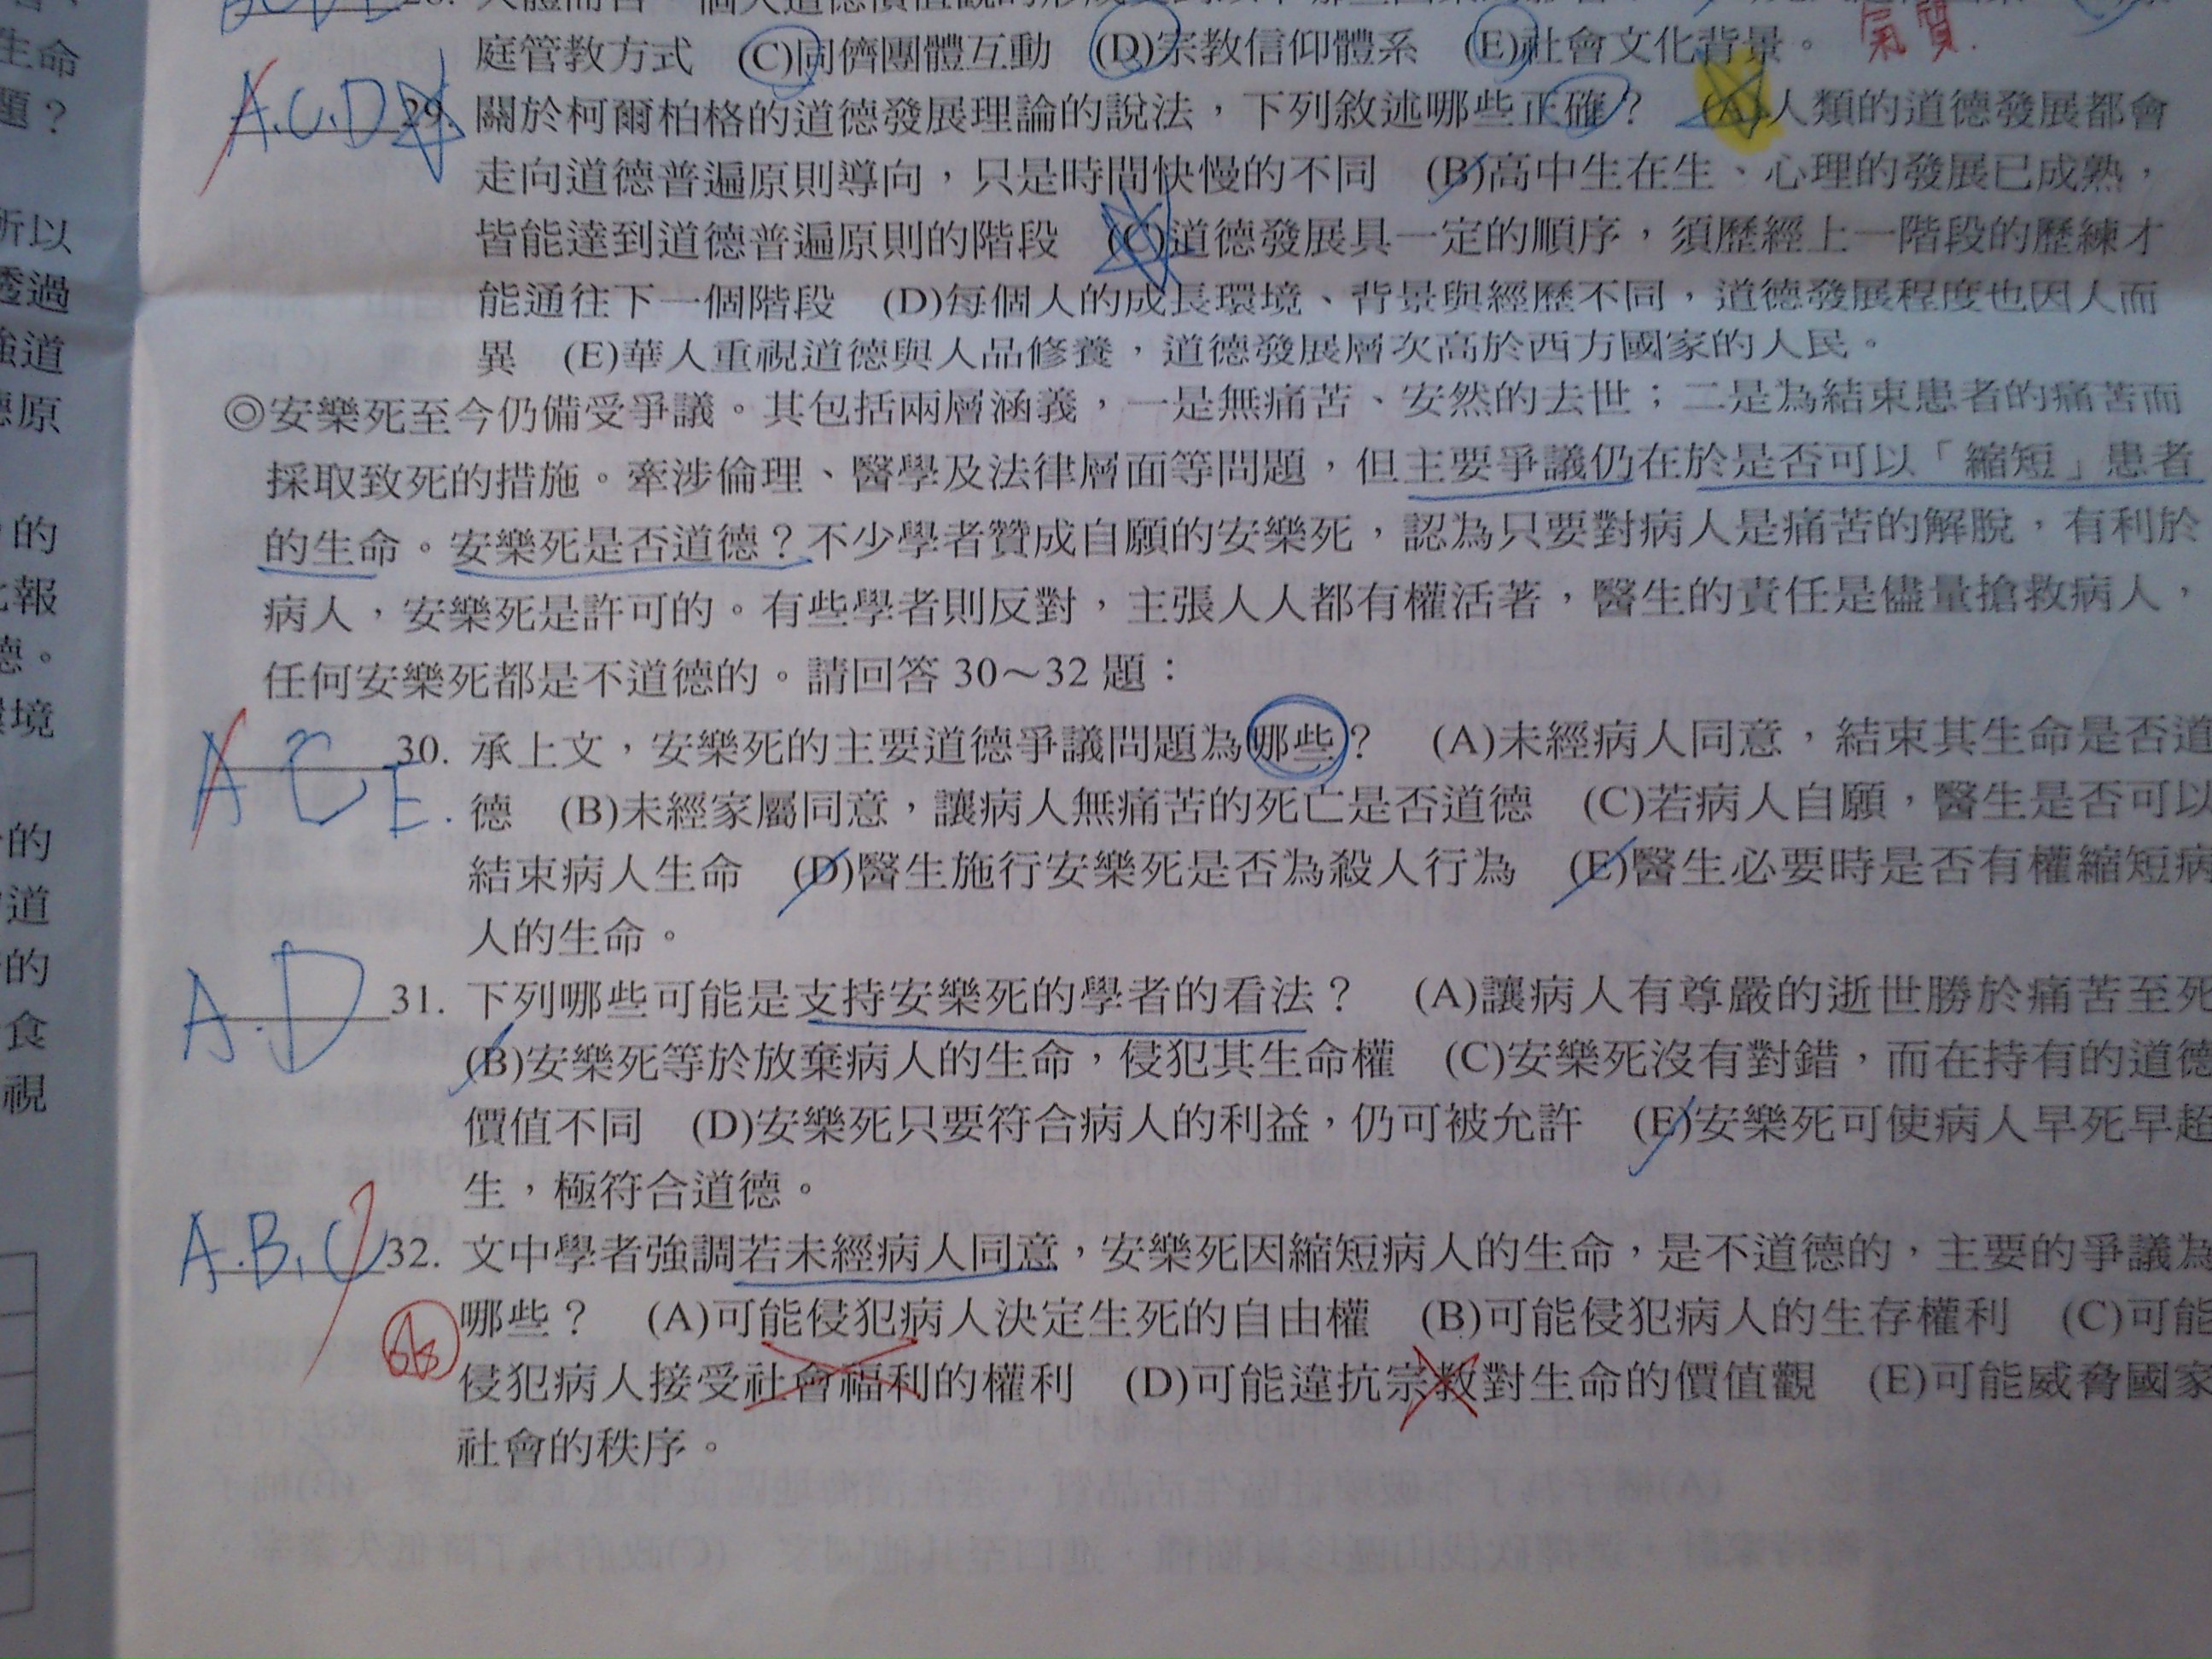 庭管教方式 (C)同儕團體互動 (D)宗教信仰體系 (E)社會文化背景。 氣質.
A.C.D 29. 關於柯爾柏格的道德發展理論的說法，下列敘述哪些正確？ (A)人類的道德發展都會
走向道德普遍原則導向，只是時間快慢的不同 (B)高中生在生、心理的發展已成熟，
皆能達到道德普遍原則的階段 (C)道德發展具一定的順序，須歷經上一階段的歷練才
能通往下一個階段 (D)每個人的成長環境、背景與經歷不同，道德發展程度也因人而
異 (E)華人重視道德與人品修養，道德發展層次高於西方國家的人民。
◎安樂死至今仍備受爭議。其包括兩層涵義，一是無痛苦、安然的去世；二是為結束患者的痛苦而
採取致死的措施。牽涉倫理、醫學及法律層面等問題，但主要爭議仍在於是否可以「縮短」患者
的生命。安樂死是否道德？不少學者贊成自願的安樂死，認為只要對病人是痛苦的解脫，有利於
病人，安樂死是許可的。有些學者則反對，主張人人都有權活著，醫生的責任是儘量搶救病人，
任何安樂死都是不道德的。請回答 30～32 題：
A C E. 30. 承上文，安樂死的主要道德爭議問題為哪些？ (A)未經病人同意，結束其生命是否道
德 (B)未經家屬同意，讓病人無痛苦的死亡是否道德 (C)若病人自願，醫生是否可以
結束病人生命 (D)醫生施行安樂死是否為殺人行為 (E)醫生必要時是否有權縮短病
人的生命。
A.D 31. 下列哪些可能是支持安樂死的學者的看法？ (A)讓病人有尊嚴的逝世勝於痛苦至死
(B)安樂死等於放棄病人的生命，侵犯其生命權 (C)安樂死沒有對錯，而在持有的道德
價值不同 (D)安樂死只要符合病人的利益，仍可被允許 (E)安樂死可使病人早死早超
生，極符合道德。
A.B.C 32. 文中學者強調若未經病人同意，安樂死因縮短病人的生命，是不道德的，主要的爭議為
哪些？ (A)可能侵犯病人決定生死的自由權 (B)可能侵犯病人的生存權利 (C)可能
侵犯病人接受社會福利的權利 (D)可能違抗宗教對生命的價值觀 (E)可能威脅國家
社會的秩序。